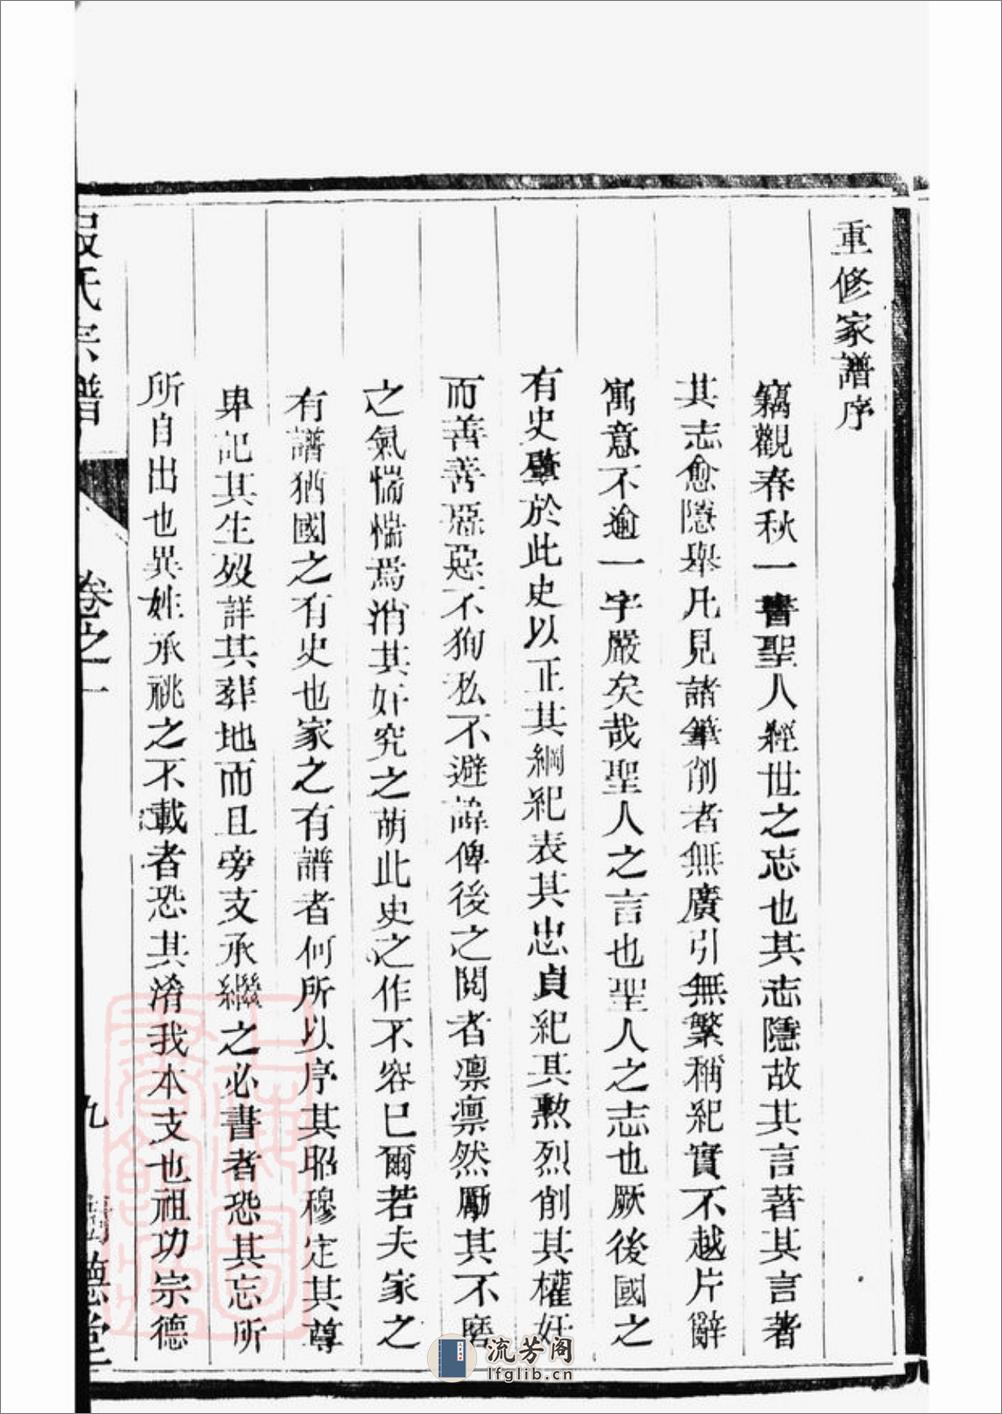 重修家譜序
竊觀春秋一書聖人經世之志也其志隱故其言著其言著
其志愈隱舉凡見諸筆削者無廣引無繁稱紀實不越片辭
寓意不逾一字嚴矣哉聖人之言也聖人之志也厥後國之
有史肇於此史以正其綱紀表其忠貞紀其勲烈削其權奸
而善善惡惡不狥私不避諱俾後之閱者凛凛然勵其不磨
之氣惴惴焉消其奸究之萌此史之作不容已爾若夫家之
有譜猶國之有史也家之有譜者何所以序其昭穆定其尊
卑記其生歿詳其葬地而且旁支承繼之必書者恐其忘所
所自出也異姓承祧之不載者恐其淆我本支也祖功宗德
氏宗譜
卷之一
九
德堂
流芳阁
lfglib.cn